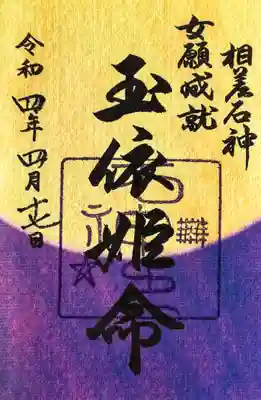 相差石神
女願成就
玉依姫命
令和四年四月十七日
石神